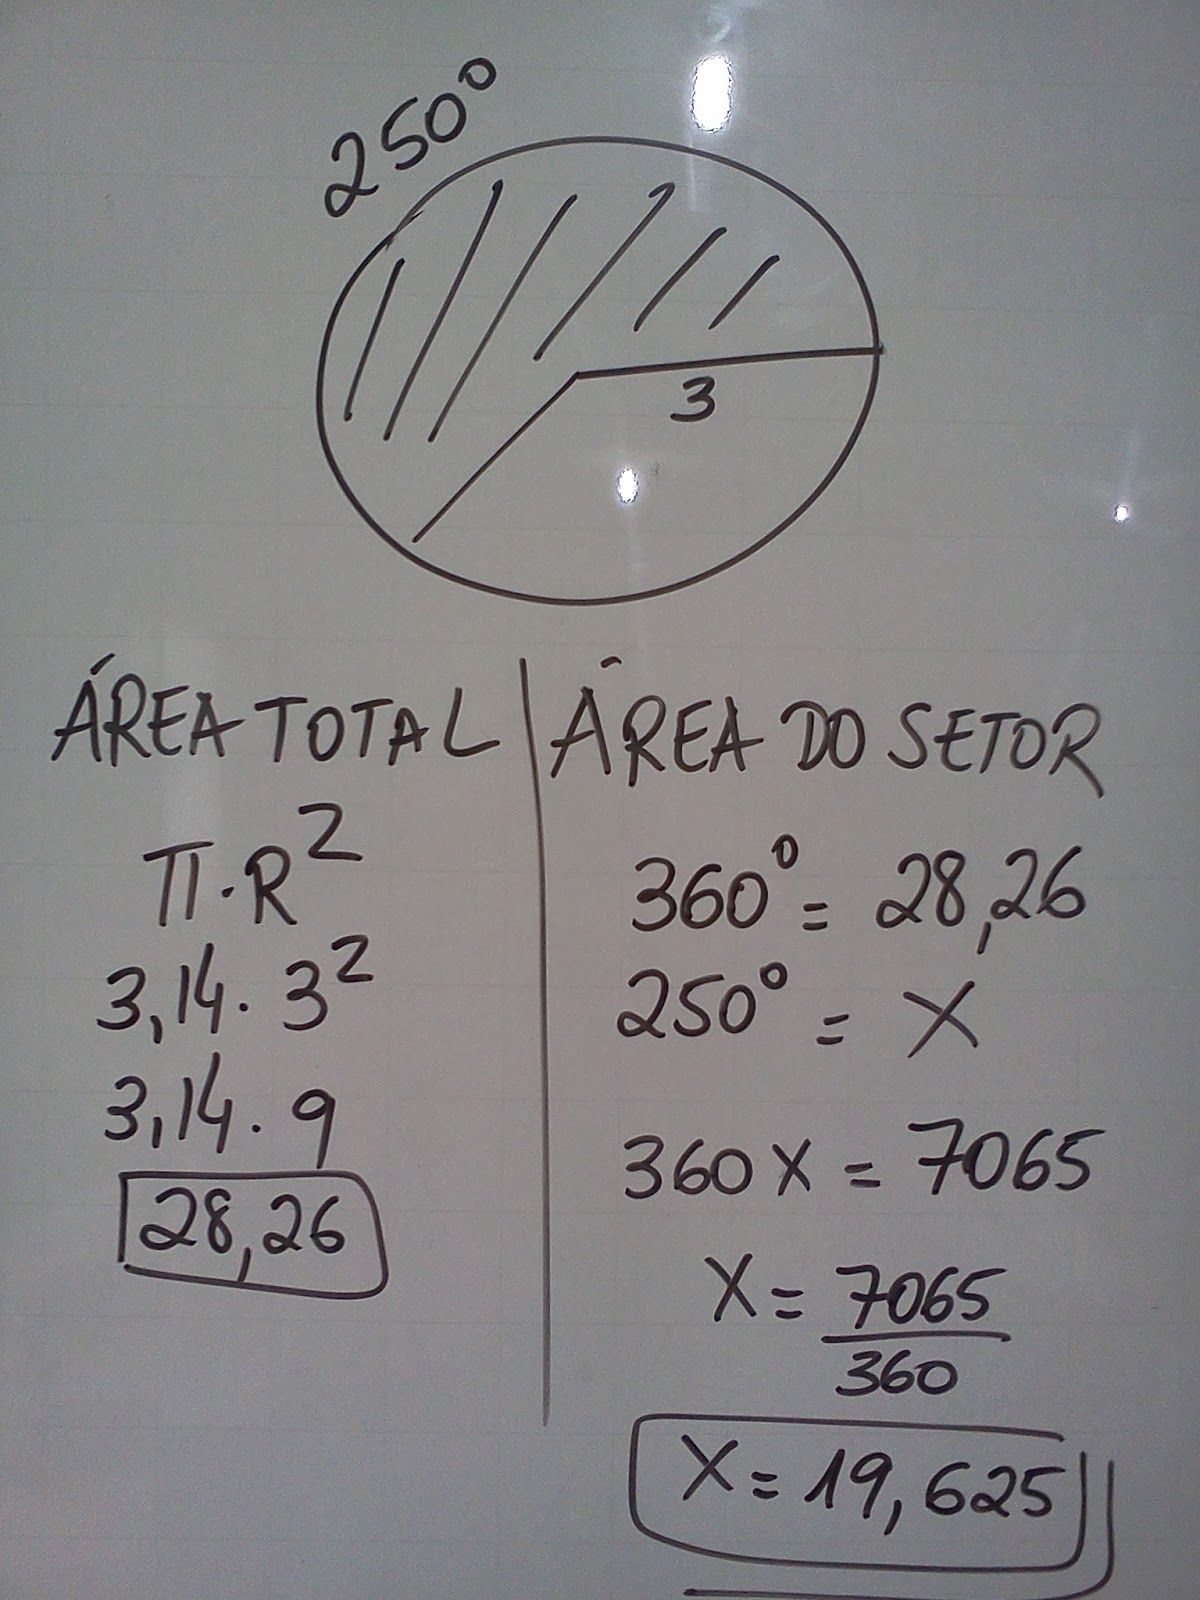 250°
3
ÁREA TOTAL
π·R²
3,14·3²
3,14·9
28,26
ÁREA DO SETOR
360° = 28,26
250° = X
360X = 7065
X = 7065
360
X = 19,625